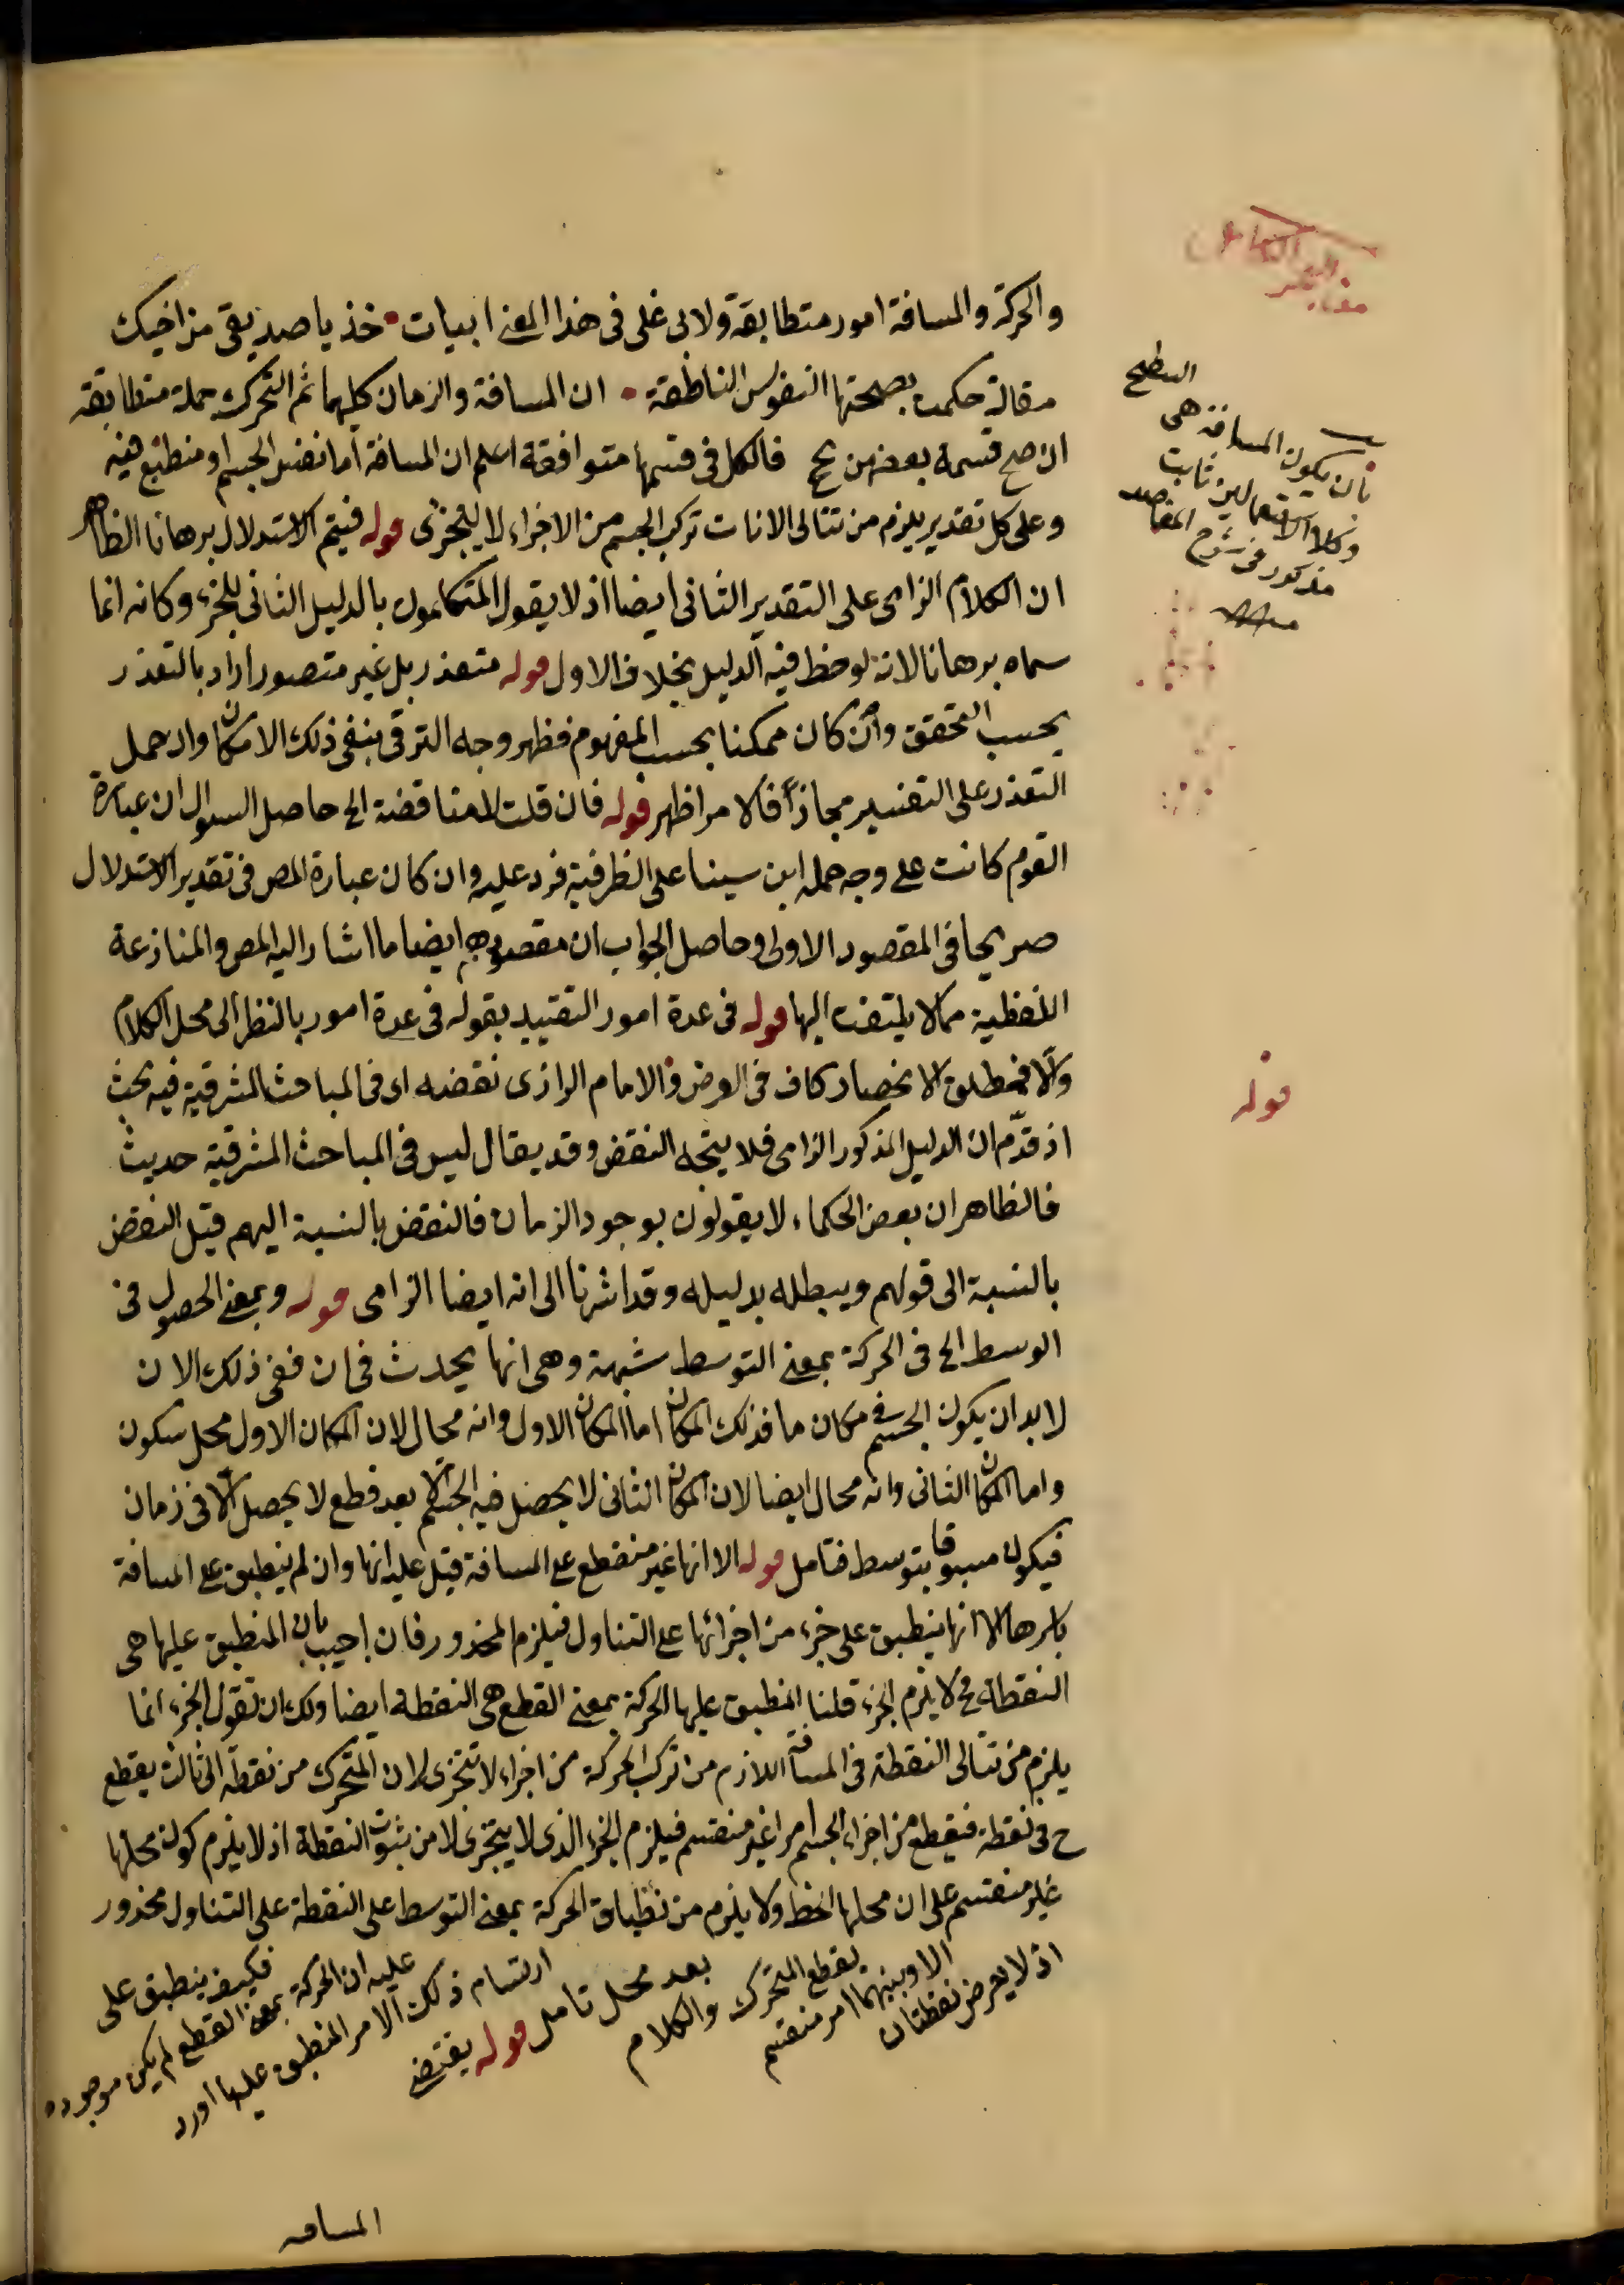 والحركة والمسافة امور متطابقة ولابى على فى هذا المعنى ابيات خذ يا صديقى من اخيك
مقالة حكمت بصحتها النفوس الناطقة ان المسافة والزمان كليهما ثم التحرك جملة متطابقه
ان صح قسمة بعضهن فالكل فى قسمها متوافقة اعلم ان المسافة اما نفس الجسم او منطبع فيه
وعلى كل تقدير يلزم من تتالى الانات تركب الجسم من الاجزاء لا يتجزى قوله فيتم الاستدلال برهانا الظاهر
ان الكلام الزامى على التقدير الثانى ايضا اذ لا يقول المتكلمون بالدليل الثانى للجزء وكانه انما
سماه برهانا لانه لوحظ فيه الدليل بخلاف الاول قوله متعذر بل غير متصور اراد بالتعذر
بحسب التحقق وان كان ممكنا بحسب المفهوم فظهر وجه الترقى بنفى ذلك الامكان وان حمل
التعذر على التفسير مجازا فالامر اظهر قوله فان قلت لا مناقضة الخ حاصل السوال ان عبارة
القوم كانت على وجه حمله ابن سينا على الظرفية فرد عليه وان كان عبارة المص فى تقدير الاستدلال
صريحا فى المقصود الاولى وحاصل الجواب ان مقصودهم ايضا ما اشار اليه المص والمنازعة
اللفظية مما لا يلتفت اليها قوله فى عدة امور التقييد بقوله فى عدة امور بالنظر الى محل الكلام
والا فمطلق الانحصار كاف فى الغرض والامام الرازى نقضه اى فى المباحث المشرقية فيه بحث
اذ قدم ان الدليل المذكور الزامى فلا يتجه النقض وقد يقال ليس فى المباحث المشرقية حديث
فالظاهر ان بعض الحكماء لا يقولون بوجود الزمان فالنقض بالنسبة اليهم قيل النقض
بالنسبة الى قولهم ويبطله بدليله وقد اشرنا الى انه ايضا الزامى قوله وبمعنى الحصول فى
الوسط الخ فى الحركة بمعنى التوسط شبهة وهى انها يحدث فى ان ففى ذلك الان
لا بد ان يكون الجسم فى مكان ما فذلك المكان اما المكان الاول وانه محال لان المكان الاول محل سكون
واما المكان الثانى وانه محال ايضا لان المكان الثانى لا يحصل فيه الجسم الا بعد قطع لا يحصل الا فى زمان
فيكون مسبوقا بتوسط فتامل قوله الا انها غير منقطع على المسافة قيل عليه انها وان لم ينطبق على المسافة
باسرها الا انها ينطبق على جزء من اجزائها على التناول فيلزم المحذور فان اجيب بان المنطبق عليها هى
النقطة فح لا يلزم الجزء قلنا المنطبق عليها الحركة بمعنى القطع هى النقطة ايضا ولك ان تقول الجزء انما
يلزم من تتالى النقطة فى المسافة اللازم من تركب الحركة من اجزاء لا تتجزى لان المتحرك من نقطة الى ثالث يقطع
ح فى نقطة فيقطع من اجزاء الجسم امرا غير منقسم فيلزم الجزء الذى لا يتجزى لا من ثبوت النقطة اذ لا يلزم كون محلها
غير منقسم على ان محلها الخط ولا يلزم من انطباق الحركة بمعنى التوسط على النقطة على التناول محذور
اذ لا يعرض نقطتان
الا وبينهما امر منقسم
يقطع المتحرك والكلام
بعد محل تامل قوله يقتضى
ارتسام ذلك الامر المنطبق عليها اورد
عليه ان الحركة بمعنى القطع لم يكن موجوده
فكيف ينطبق على
المسافه
السطح
بان يكون المسافة هى
وكلا الاستعمالين ثابت
مذكور فى شرح المقاصد
قوله